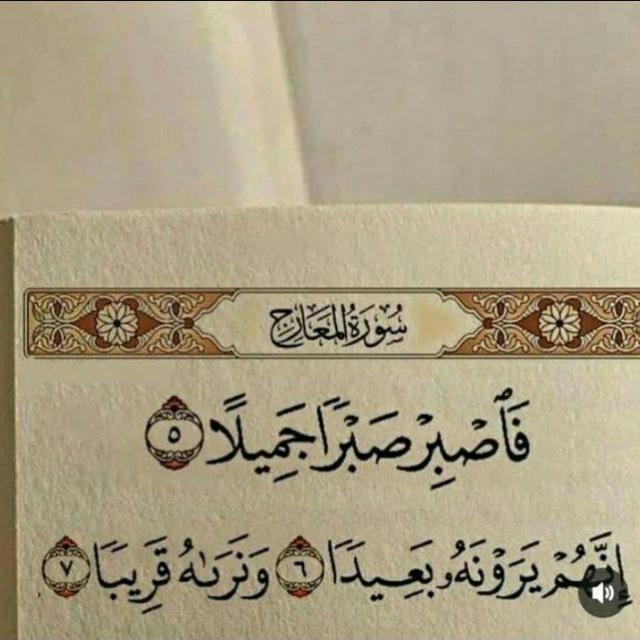 سُورَةُ المَعَارِجِ
فَٱصۡبِرۡ صَبۡرٗا جَمِيلًا ٥
إِنَّهُمۡ يَرَوۡنَهُۥ بَعِيدٗا ٦ وَنَرَىٰهُ قَرِيبٗا ٧